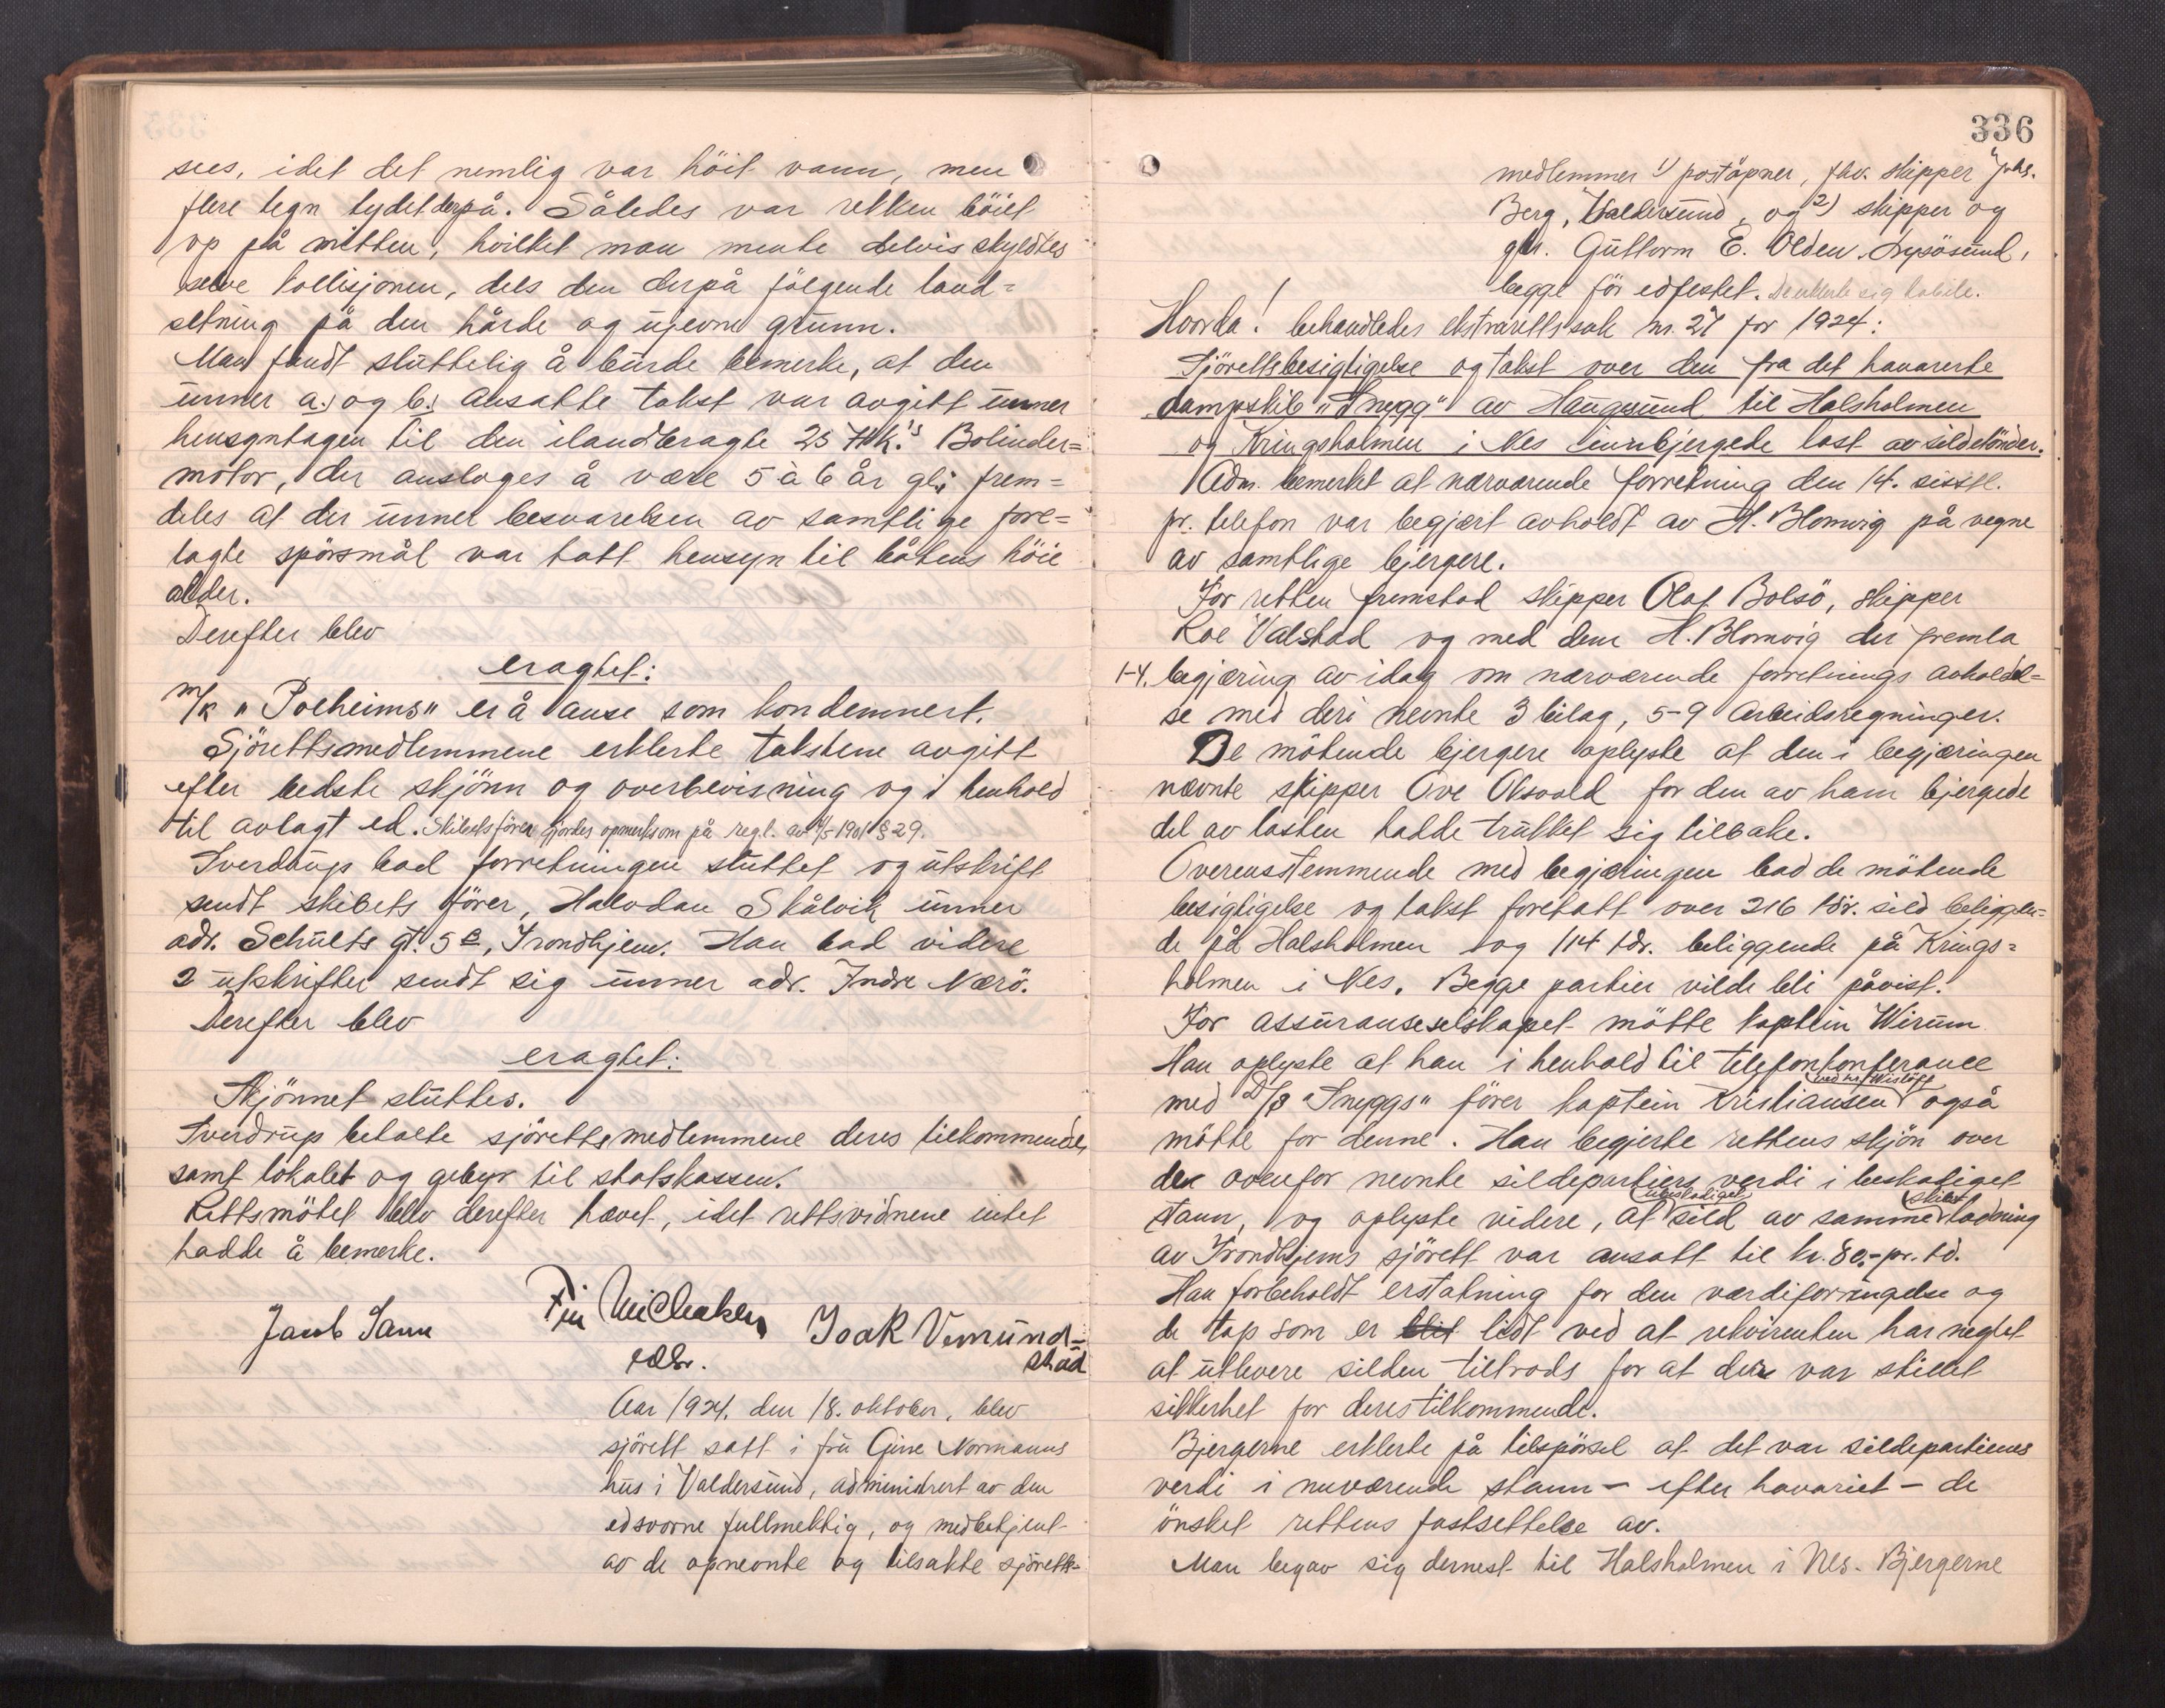 sees, idet det nemlig var höit vann, men
flere tegn tydet derpå. Således var rekken böiet
op på midten, hvilket man mente delvis skyldtes
selve kollisjonen, dels den derpå fölgende land-
setning på den hårde og ujevne grunn.
Man fandt sluttelig å burde bemerke, at den
unner a.) og b.) ansatte takst var avgitt unner
hensyntagen til den ilandbragte 25 Hk.'s Bolinder-
motor, der ansloges å være 5 à 6 år gl; frem-
deles at der unner besvarelsen av samtlige fore-
lagte spörsmål var tatt hensyn til båtens höie
alder.
Derefter blev
eragtet:
m/k "Polheims" er å anse som kondemnert.
Sjörettsmedlemmene erklerte takstene avgitt
efter bedste skjönn og overbevisning og i henhold
til avlagt ed. Skibets förer gjordes opmerksom på regl. av 4/5-1901 § 29.
Sverdrup bad forretningen sluttet og utskrift
sendt skibets förer, Halvdan Skålvik unner
adr. Schults gt. 5 B, Trondhjem. Han bad videre
2 utskrifter sendt sig unner adr. Indre Nærö.
Derefter blev
eragtet:
Skjönnet sluttes.
Sverdrup betalte sjörettsmedlemmene deres tilkommende,
samt lokalet og gebyr til statskassen.
Rettsmötet blev derefter hævet, idet rettsvidnene intet
hadde å bemerke.
Jacob Sann Fin Michaelsen Isak Vemund-
edsv. stad
Aar 1924, den 18. oktober, blev
sjörett satt i fru Gine Normanns
hus i Valdersund, administrert av den
edsvorne fullmektig, og medbetjent
av de opnevnte og tilsatte sjöretts-
336
medlemmer 1) poståpner, fhv. skipper Johs.
Berg, Valdersund, og 2) skipper og
gbr. Guttorm E. Olden, Lysösund,
begge för edfestet. De erklerte sig habile.
Hvorda! behandledes ekstrarettssak nr. 27 for 1924:
Sjörettsbesigtigelse og takst over den fra det havarerte
dampskib "Snegg" av Haugesund til Halsholmen
og Kringsholmen i Nes innbjergede last av sildetönder.
Adm. bemerket at nærværende forretning den 14. sisstl.
pr. telefon var begjært avholdt av H. Blomvig på vegne
av samtlige bjergere.
For retten fremstod skipper Olaf Bolsö, skipper
Roe Valstad og med dem H. Blomvig der fremla
1-4. begjæring av idag om nærværende forretnings avholdel-
se med deri nevnte 3 bilag, 5-9 Arbeidsregninger.
De mötende bjergere oplyste at den i begjæringen
nævnte skipper Ove Oksvold for den av ham bjergede
del av lasten hadde trukket sig tilbake.
Overensstemmende med begjæringen bad de mötende
besigtigelse og takst foretatt over 216 tdr. sild beliggen-
de på Halsholmen og 114 tdr. beliggende på Krings-
holmen i Nes. Begge partier vilde bli påvist.
For assuranseselskapet mötte kaptein Wirum
Han oplyste at han i henhold til telefonkonferance
med D/S "Sneggs" förer kaptein Kristiansen ved hr. Wislöff også
mötte for denne. Han begjerte rettens skjön over
den ovenfor nevnte sildepartiers verdi i beskadiget
stann, og oplyste videre, at ubeskadiget sild av samme skibs ladning
av Trondhjems sjörett var ansatt til kr. 80,- pr. td.
Han forbeholdt erstatning for den værdiforringelse og
de tap som er blit lidt ved at rekvirenten har neglet
at utlevere silden tiltrods for at der var stillet
sikkerhet for deres tilkommende.
Bjergerne erklerte på tilspörsel at det var sildepartienes
verdi i nuværende stann - efter havariet - de
önsket rettens fastsettelse av.
Man begav sig dernest til Halsholmen i Nes. Bjergerne